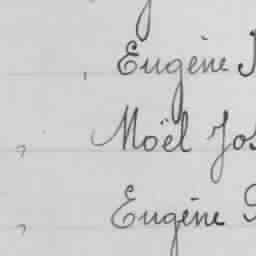 Eugène
Noël Jos
Eugène